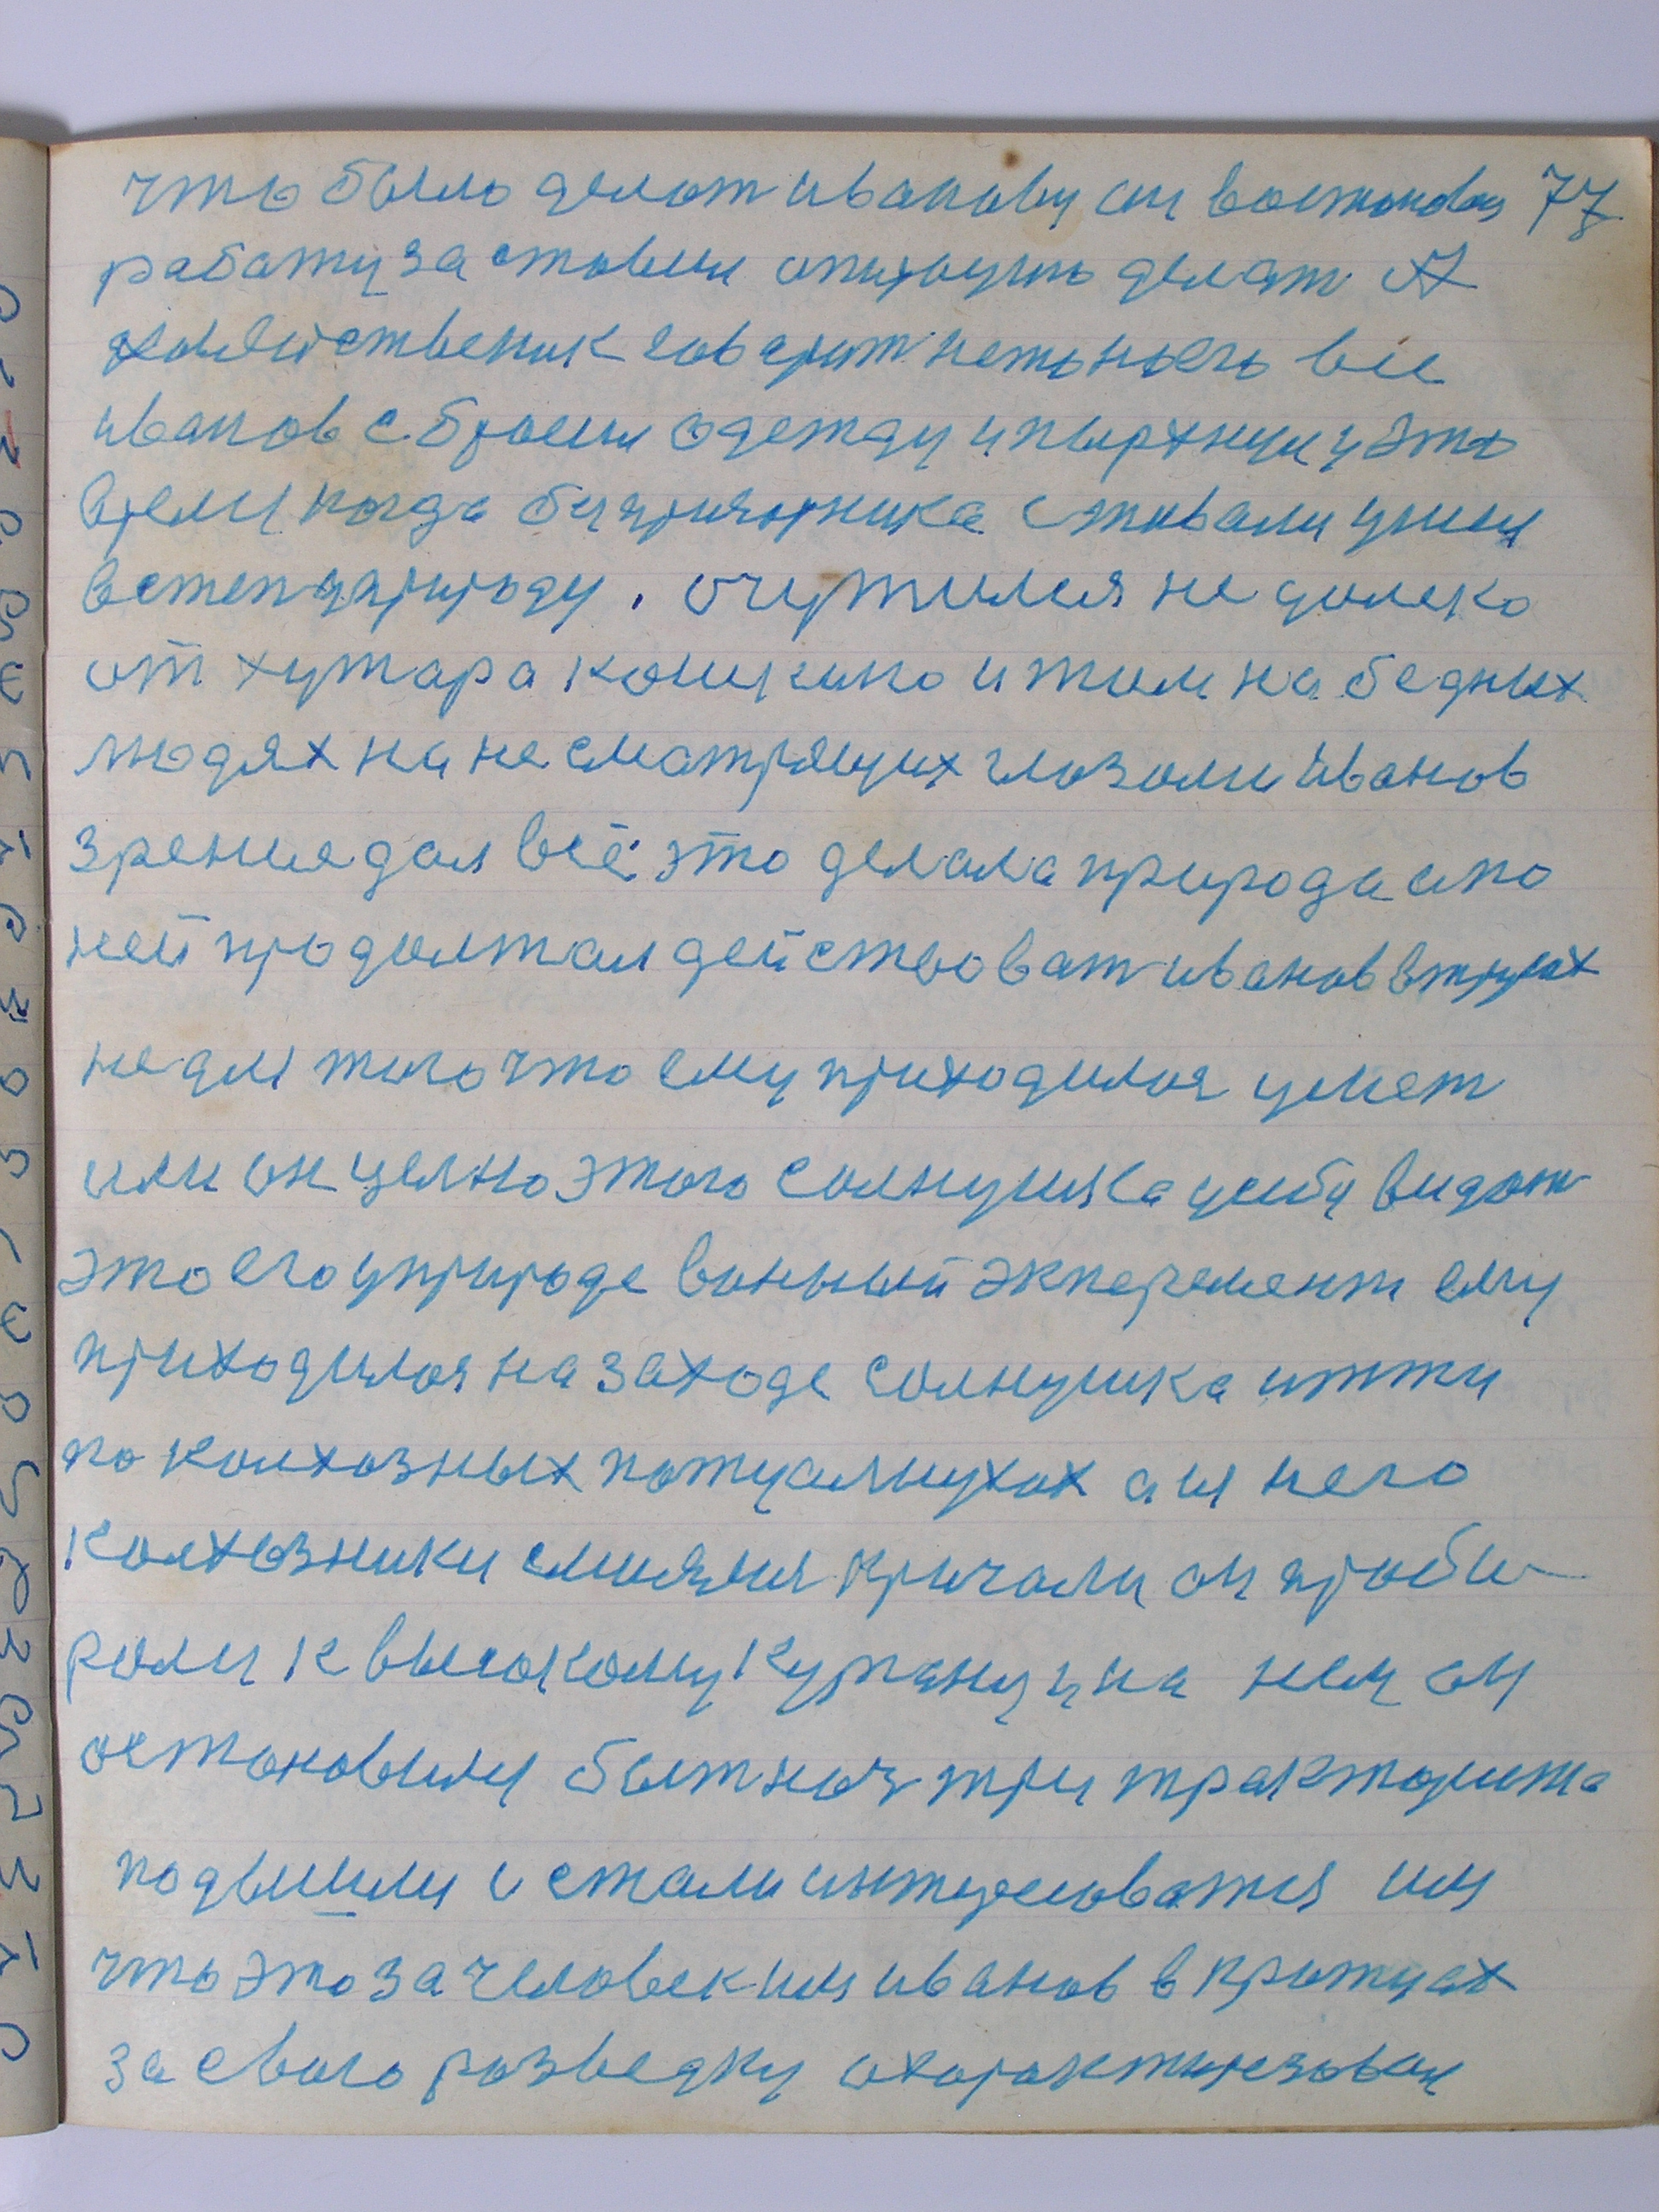 что было делат иванову он востановил 77
работу заставил опихоушо делат А
хозяйственик говерит нето ного все
иванов сбросил одежду и пырхнул у это
время когда безпризорника ставали ушол
встеп уприроду. очутился не далеко
от хутара кошкино и там на бедных
людях на не сматрящих глазами иванов
зрение дал всё это делала природа а по
ней продолжал действоват иванов втрусах
не для того что ему приходился умет
или он цельно этого солнушка усебу видат
это его уприроде ванный экперемент ему
приходился на заходе солнушка итти
по колхозных подсолнухах а ия него
колхозники смиялися кричали он проби
рался к высокому кургану и на нем он
остановился быт ноч три тракториста
подышли и стали интересоватся им
что это за человек им иванов в кротцах
за свого разведку охарактирезовал